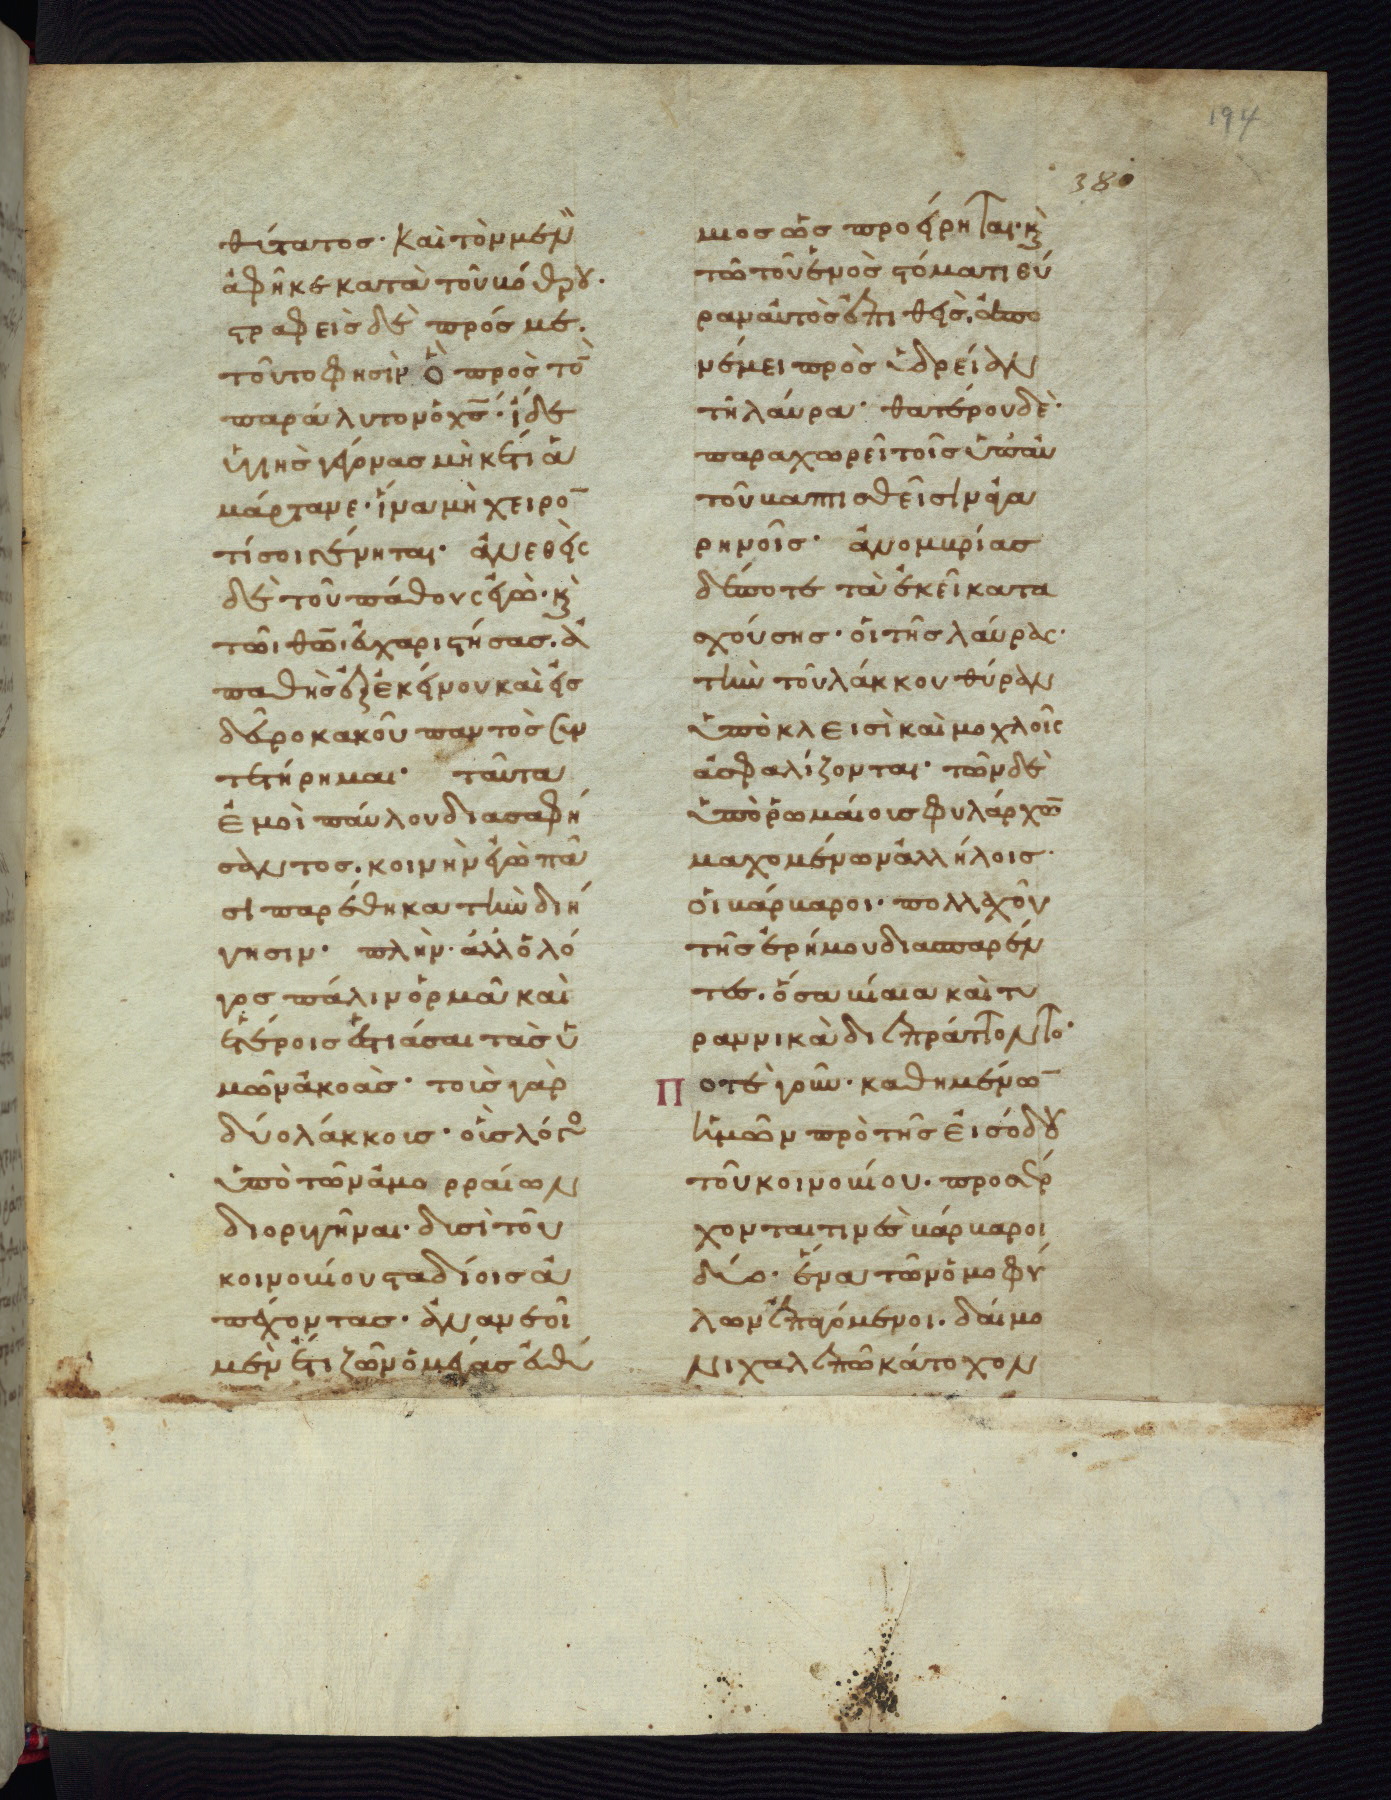 194
380
θύτατος· Καὶ τὸν μὲν
ἀφῆκε κατὰ τοῦ κόθρου·
στραφεὶς δὲ πρός με.
τοῦτο φησὶν ὃ πρὸς τὸ
παράλυτον ὁ χς· ἴδε
ὑγιὴς γέγονας μηκέτι ἁ
μάρτανε· ἵνα μὴ χειρο
τί σοι γένηται· ἀνεθεὶς
δὲ τοῦ πάθους ἐγὼ· κ
τῶι θωι εὐχαριστήσας. ἀ
παθὴς ἐξ ἐκείνου καὶ εἰς
δεῦρο κακοῦ παντὸς συν
τετήρημαι· ταῦτα
ἐμοὶ παύλου διασαφή
σαντος. κοινὴν ἐγὼ πᾶ
σι παρέθηκα τὴν διή
γησιν· πλὴν ἀλλ' ὁ λό
γος πάλιν ὁρμᾶ καὶ
ἑτέροις ἑστιάσαι τὰς ὑ
μῶν ἀκοὰς· τοῖς γὰρ
δύο λάκκοις· οἷς λόγος
ὑπὸ τῶν ἀμορραίων
διορυγῆναι· δυσὶ τοῦ
κοινοβίου σταδίοις ἀ
πέχοντας· ἀναμεσοῖ
μὲν ἔτι ζῶν ὁ μέγας εὐθύ
μιος ὡς προείρηται· κ
τῶ τοῦ ἑνὸς στόματι εὐ
ραν αὐτὸς ἐπιθεὶς. ἀπο
νέμει πρὸς ὑδρείαν
τῇ λαύρα· θατέρου δὲ·
παραχωρεῖ τοῖς ὑπ' αὐ
τοῦ βαπτισθεῖσιν ἀγα
ρηνοῖς· ἀνομβρίας
δέ ποτε τὰ ἐκεῖ κατα
σχούσης· οἱ τῆς λαύρας·
τὴν τοῦ λάκκου θύραν
ὑπὸ κλεισὶ καὶ μοχλοῖς
ἀσφαλίζονται· τῶν δὲ
ὑπὸ ῥωμαίοις φυλάρχω
μαχομένων ἀλλήλοις·
οἱ βάρβαροι· πολλαχοῦ
τῆς ἐρήμου διασπαρέν
τες. ὅσα βίαια καὶ τυ
ραννικὰ διεπράττοντο·
Ποτὲ γοῦν· καθημένω
ἡμῶν πρὸ τῆς εἰσόδου
τοῦ κοινοβίου. προσέρ
χονται τινὲς βάρβαροι
δύο· ἕνα τῶν ὁμοφύ
λων ἐπαγόμενοι. δαίμο
νι χαλεπῶ κάτοχον